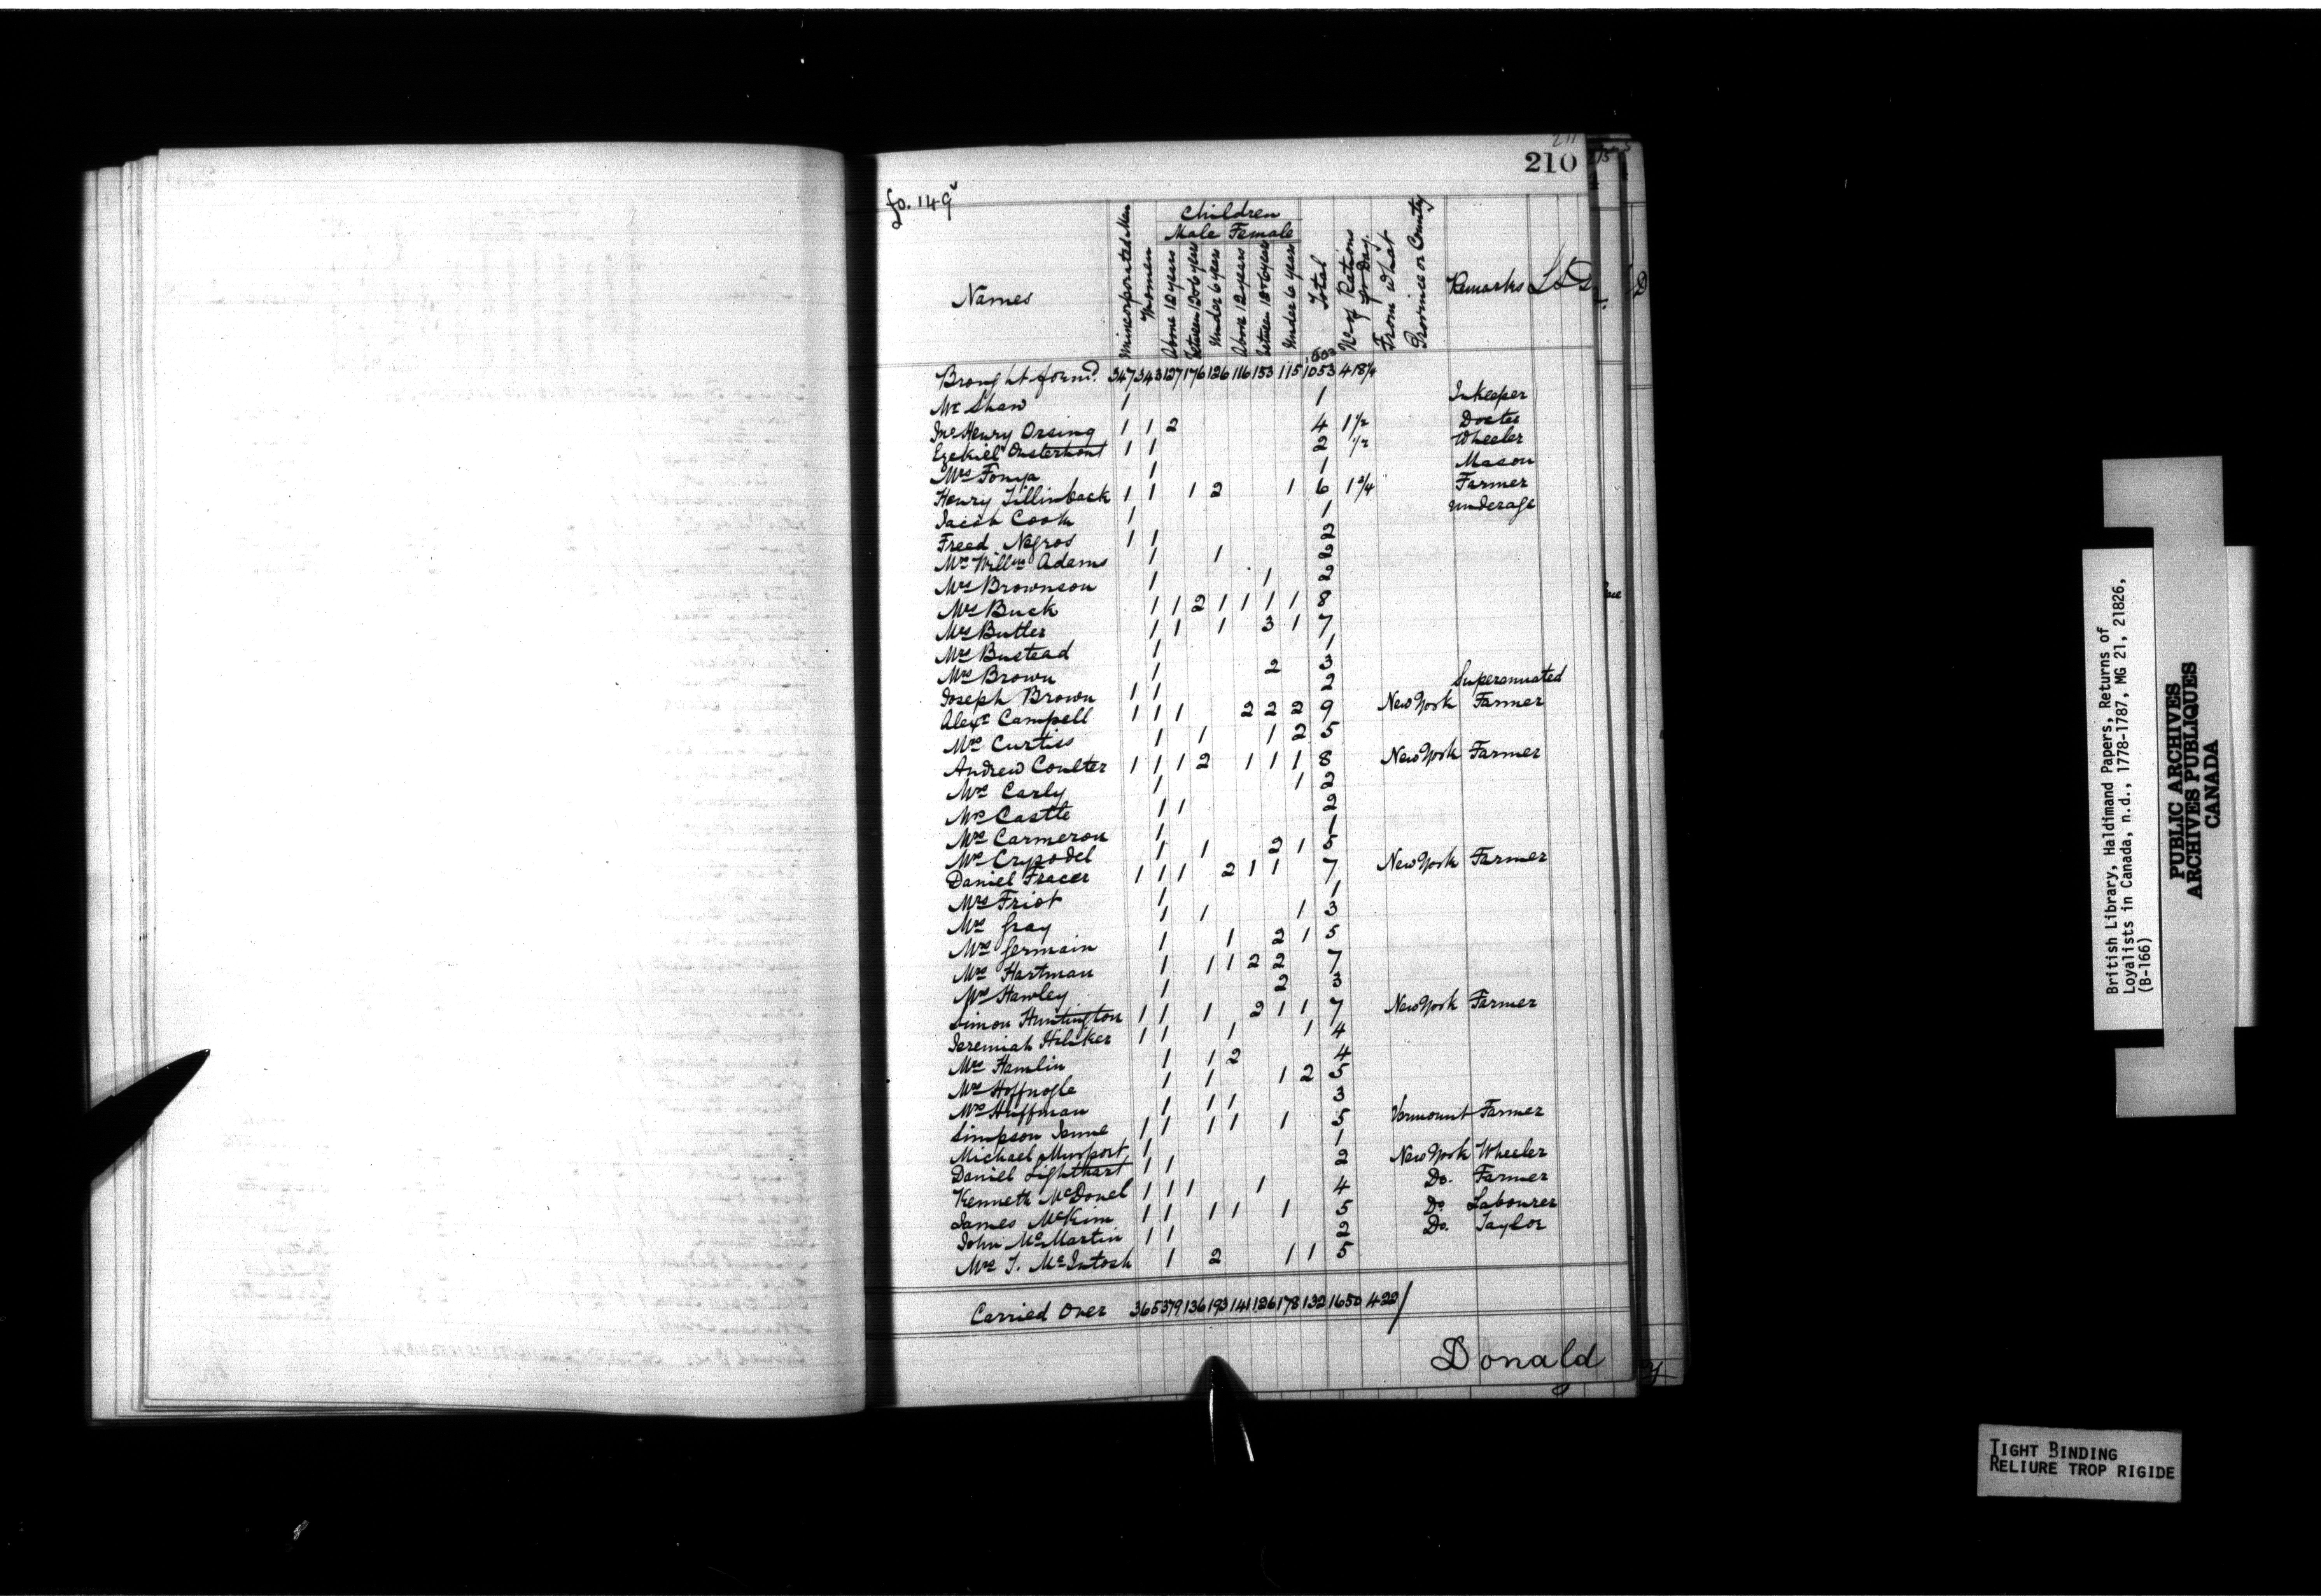 211
210
fo. 149v
Names Unincorporated Men Women Children Male Female Above 12 years Between 12 & 6 years Under 6 years Above 12 years Between 12 & 6 years Under 6 years Total No of Rations pr Day. From what Province or County Remarks
Brought forwd. 347 343 127 176 126 116 153 115 1053 418¼
Mr Shaw 1 1 Inkeeper
Jno Henry Orsing 1 1 2 4 1½ Docter
Ezekiel Ousterhout 1 1 2 ½ Wheeler
Mrs Fonya 1 1 Mason
Henry Tillinback 1 1 1 2 1 6 1¾ Farmer
Jacob Cook 1 1 underage
Freed Negros 1 1 2
Mrs Willm Adams 1 1 2
Mrs Brownson 1 1 2
Mrs Buck 1 1 2 1 1 1 1 8
Mrs Butler 1 1 1 3 1 7
Mrs Bustead 1 1
Mrs Brown 1 2 3
Joseph Brown 1 1 2 Superanuated
Alexr Campell 1 1 1 2 2 2 9 New York Farmer
Mrs Curtiss 1 1 1 2 5
Andrew Coulter 1 1 1 2 1 1 1 8 New York Farmer
Mrs Carly 1 1 2
Mrs Castle 1 1 2
Mrs Carmeron 1 1
Mrs Crysodel 1 1 2 1 5
Daniel Fracer 1 1 1 2 1 1 7 New York Farmer
Mrs Friot 1 1
Mrs Gray 1 1 1 3
Mrs Germain 1 1 2 1 5
Mrs Hartman 1 1 1 2 2 7
Mrs Hawley 1 2 3
Simon Huntington 1 1 1 2 1 1 7 New York Farmer
Jeremiah Hiliker 1 1 1 1 4
Mrs Hamlin 1 1 2 4
Mrs Hoffnogle 1 1 1 2 5
Mrs Huffman 1 1 1 3
Simpson Jenne 1 1 1 1 1 5 Varmount Farmer
Michael 1 1
Daniel Lighthart 1 1 2 New York Wheeler
Kenneth McDonel 1 1 1 1 4 Do. Farmer
James McKim 1 1 1 1 1 5 Do Labourer
John McMartin 1 1 2 Do. Taylor
Mrs J. McIntosh 1 2 1 1 5
Carried Over 365 379 136 193 141 126 178 132 1650 422/
Donald
British Library, Haldimand Papers, Returns of
Loyalists in Canada, n.d., 1778-1787, MG 21, 21826,
(B-166)
PUBLIC ARCHIVES
ARCHIVES PUBLIQUES
CANADA
TIGHT BINDING
RELIURE TROP RIGIDE